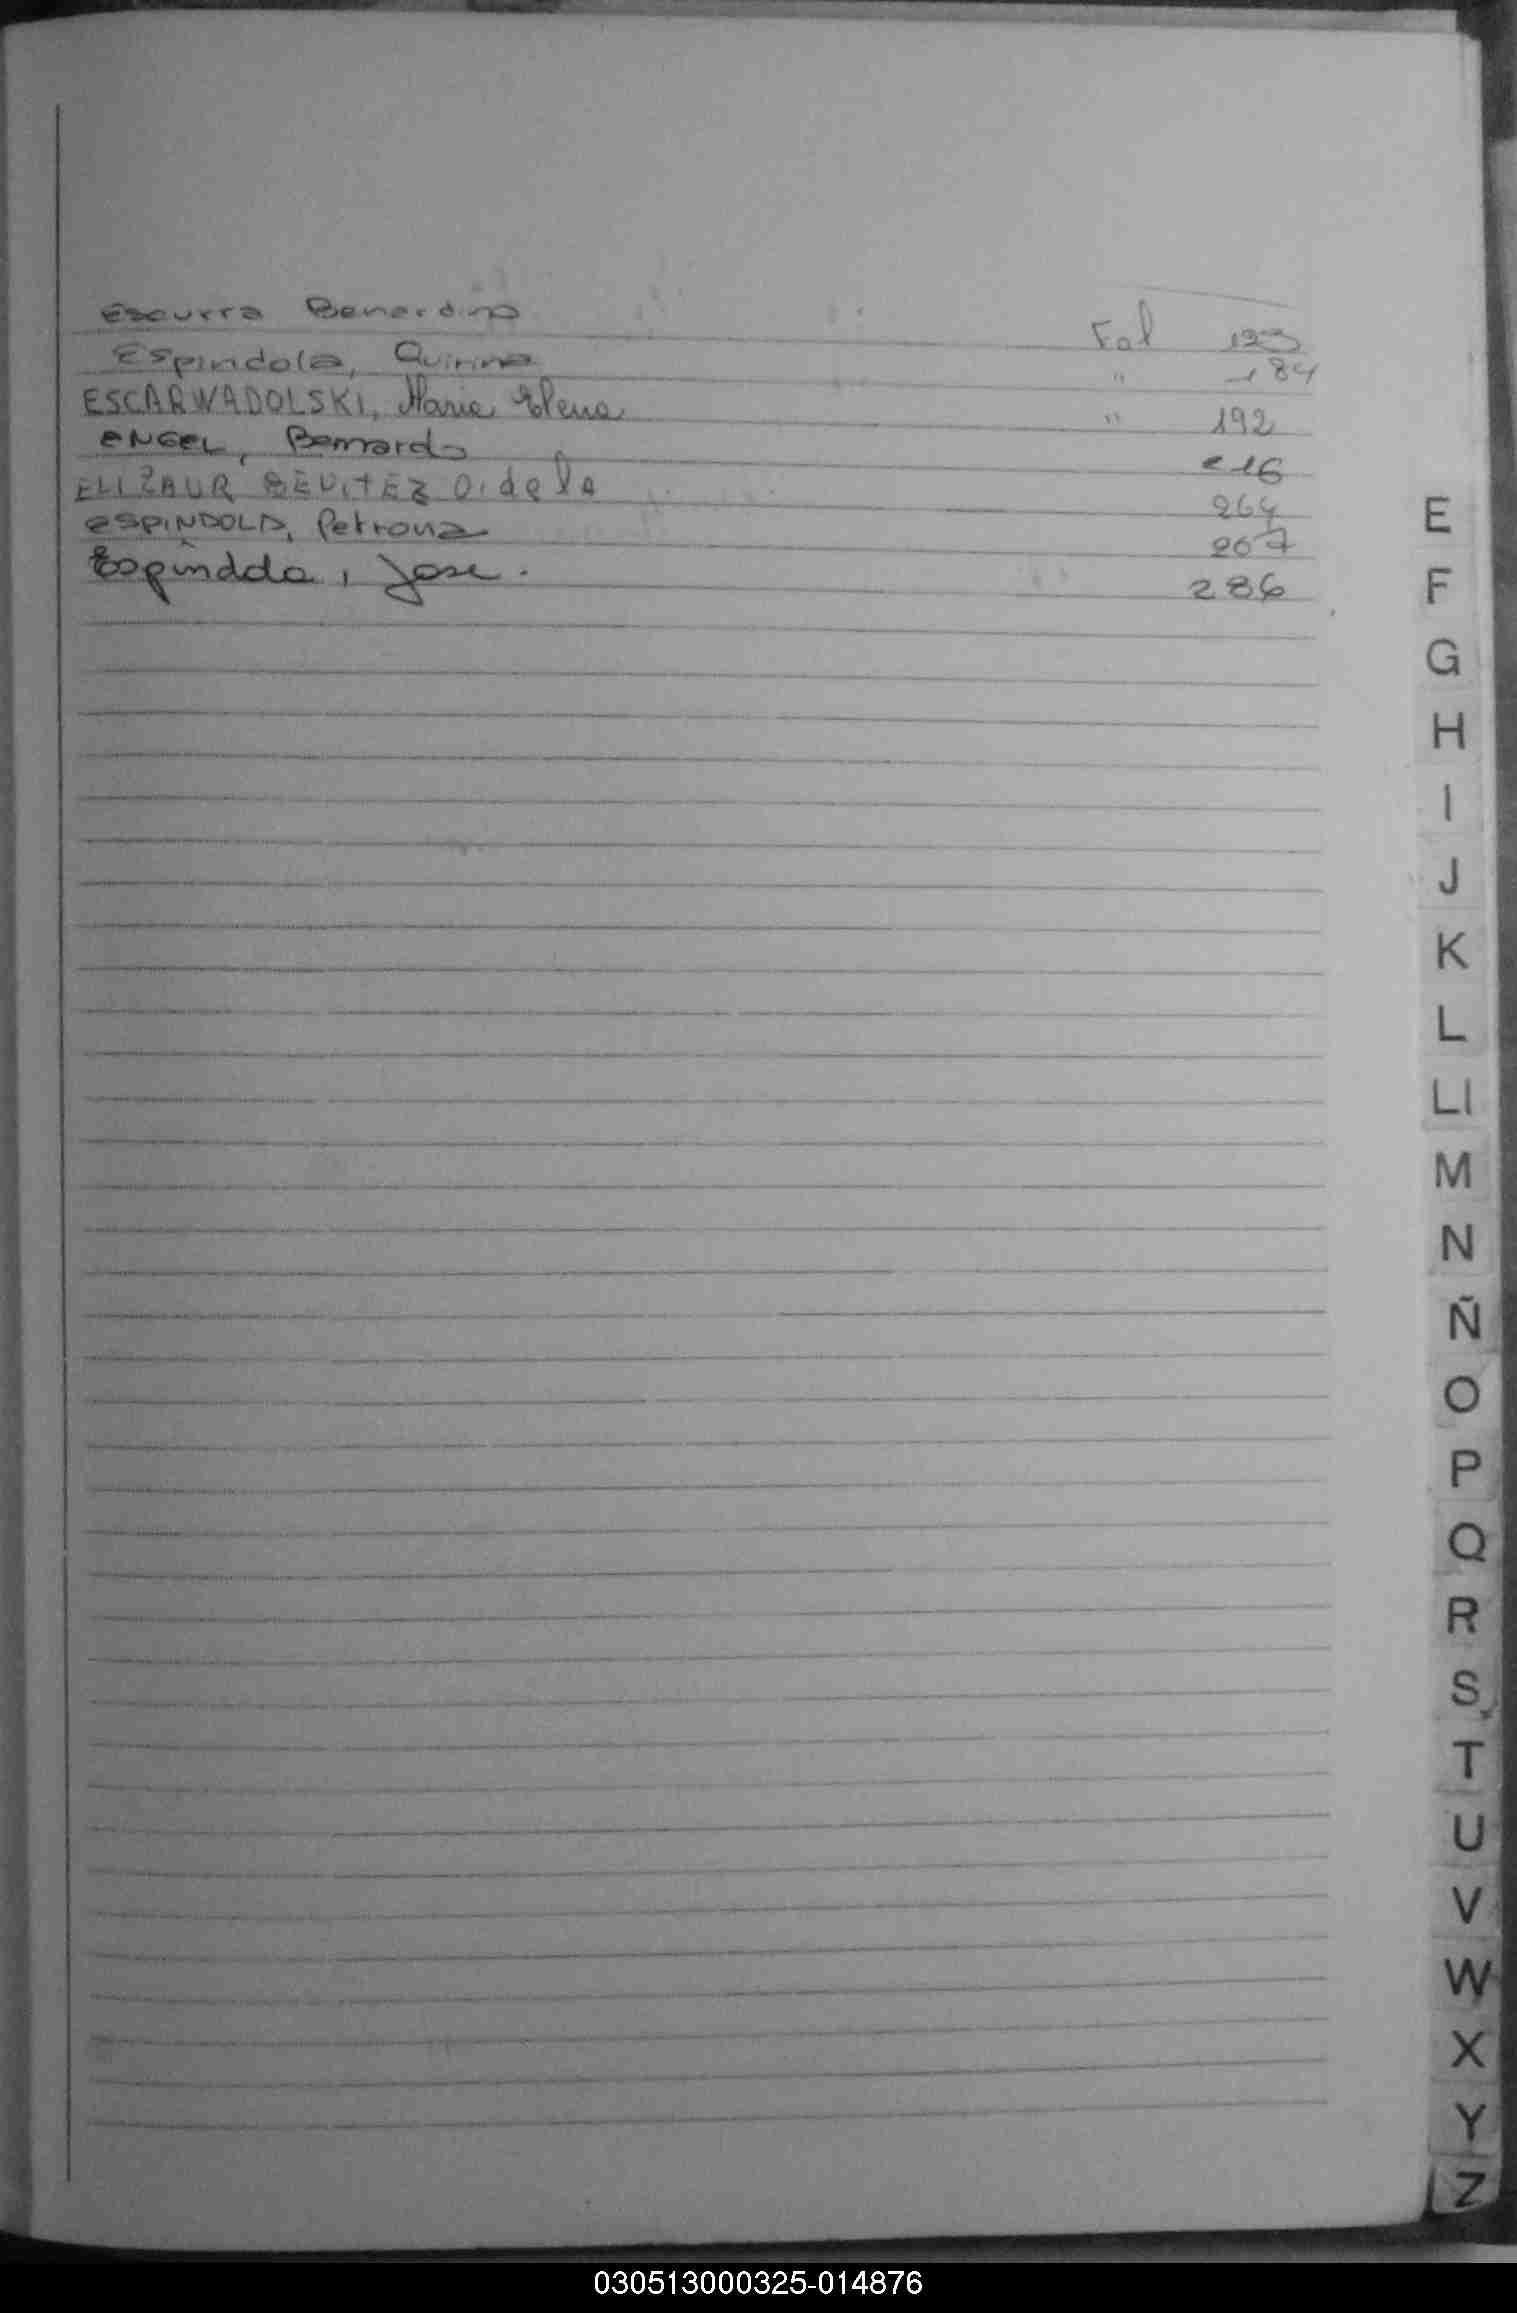 Escurra Benardino Fol 123
Espindola, Quirina " 184
ESCARWADOLSKI, Maria Elena " 192
ENGEL, Bernardo 216
ELIZAUR BENITEZ Oidela 264
ESPINDOLA, Petrona 267
Espindola, Jose. 286
E
F
G
H
I
J
K
L
Ll
M
N
Ñ
O
P
Q
R
S
T
U
V
W
X
Y
Z
030513000325-014876